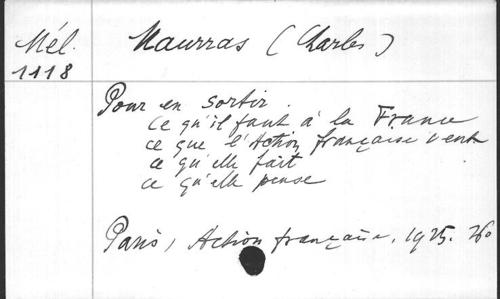 Mél.
1118
Maurras (Charles)
Pour en sortir.
Ce qu'il faut à la France
ce que l'Action française veut
ce qu'elle fait
ce qu'elle pense
Paris, Action française, 1925.